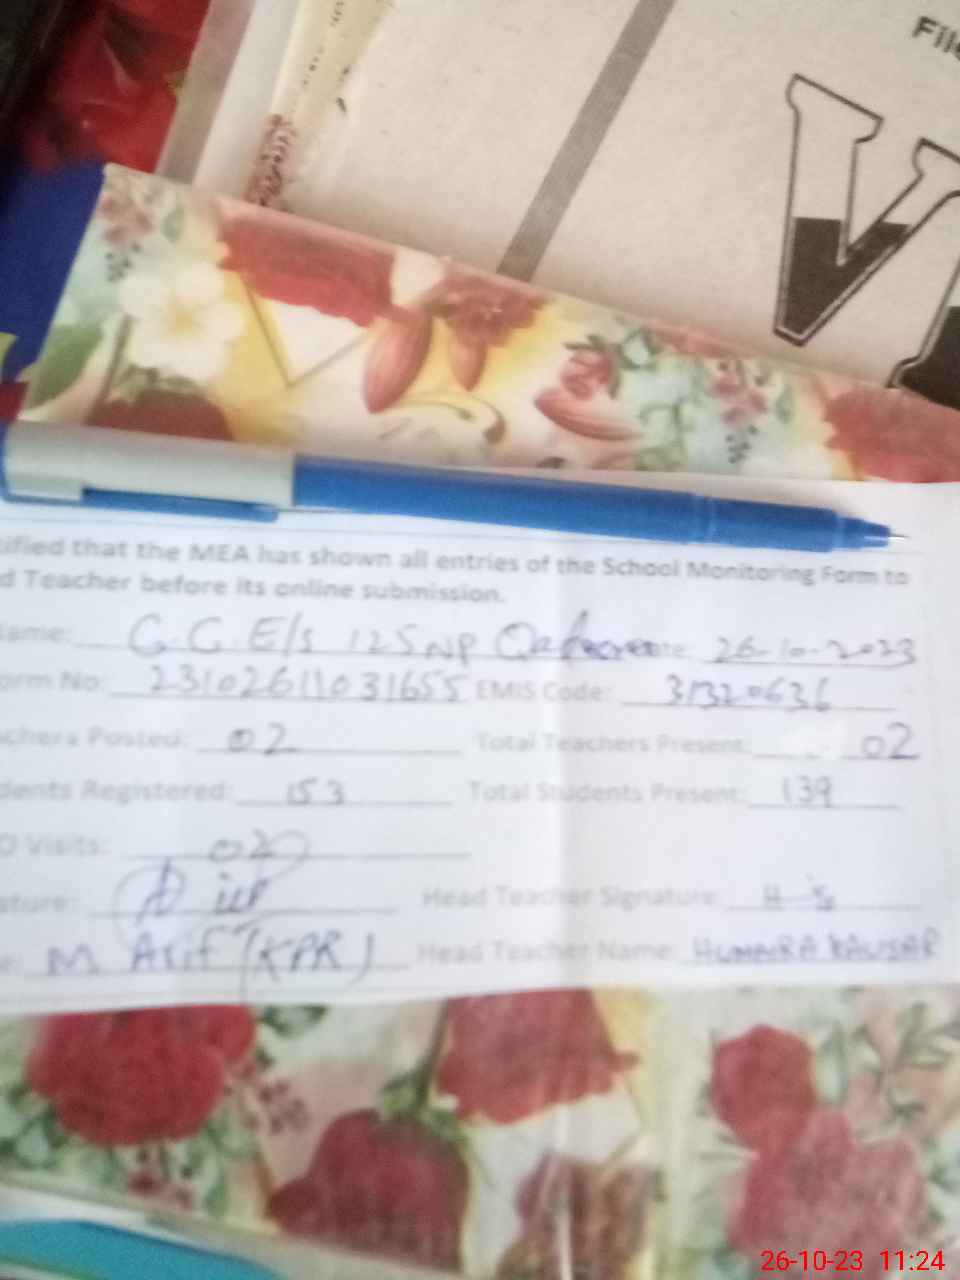 File
V
tified that the MEA has shown all entries of the School Monitoring Form to
d Teacher before its online submission.
Name: G.G.E/S 125 NP te: 26-10-2023
orm No: 23102611031655 EMIS Code: 31320636
chers Posted: 02 Total Teachers Present: 02
dents Registered: 153 Total Students Present: 139
O Visits: 02
ature: Head Teacher Signature:
e: M Asif (KPR) Head Teacher Name: HUMAIRA KAUSAR
26-10-23 11:24